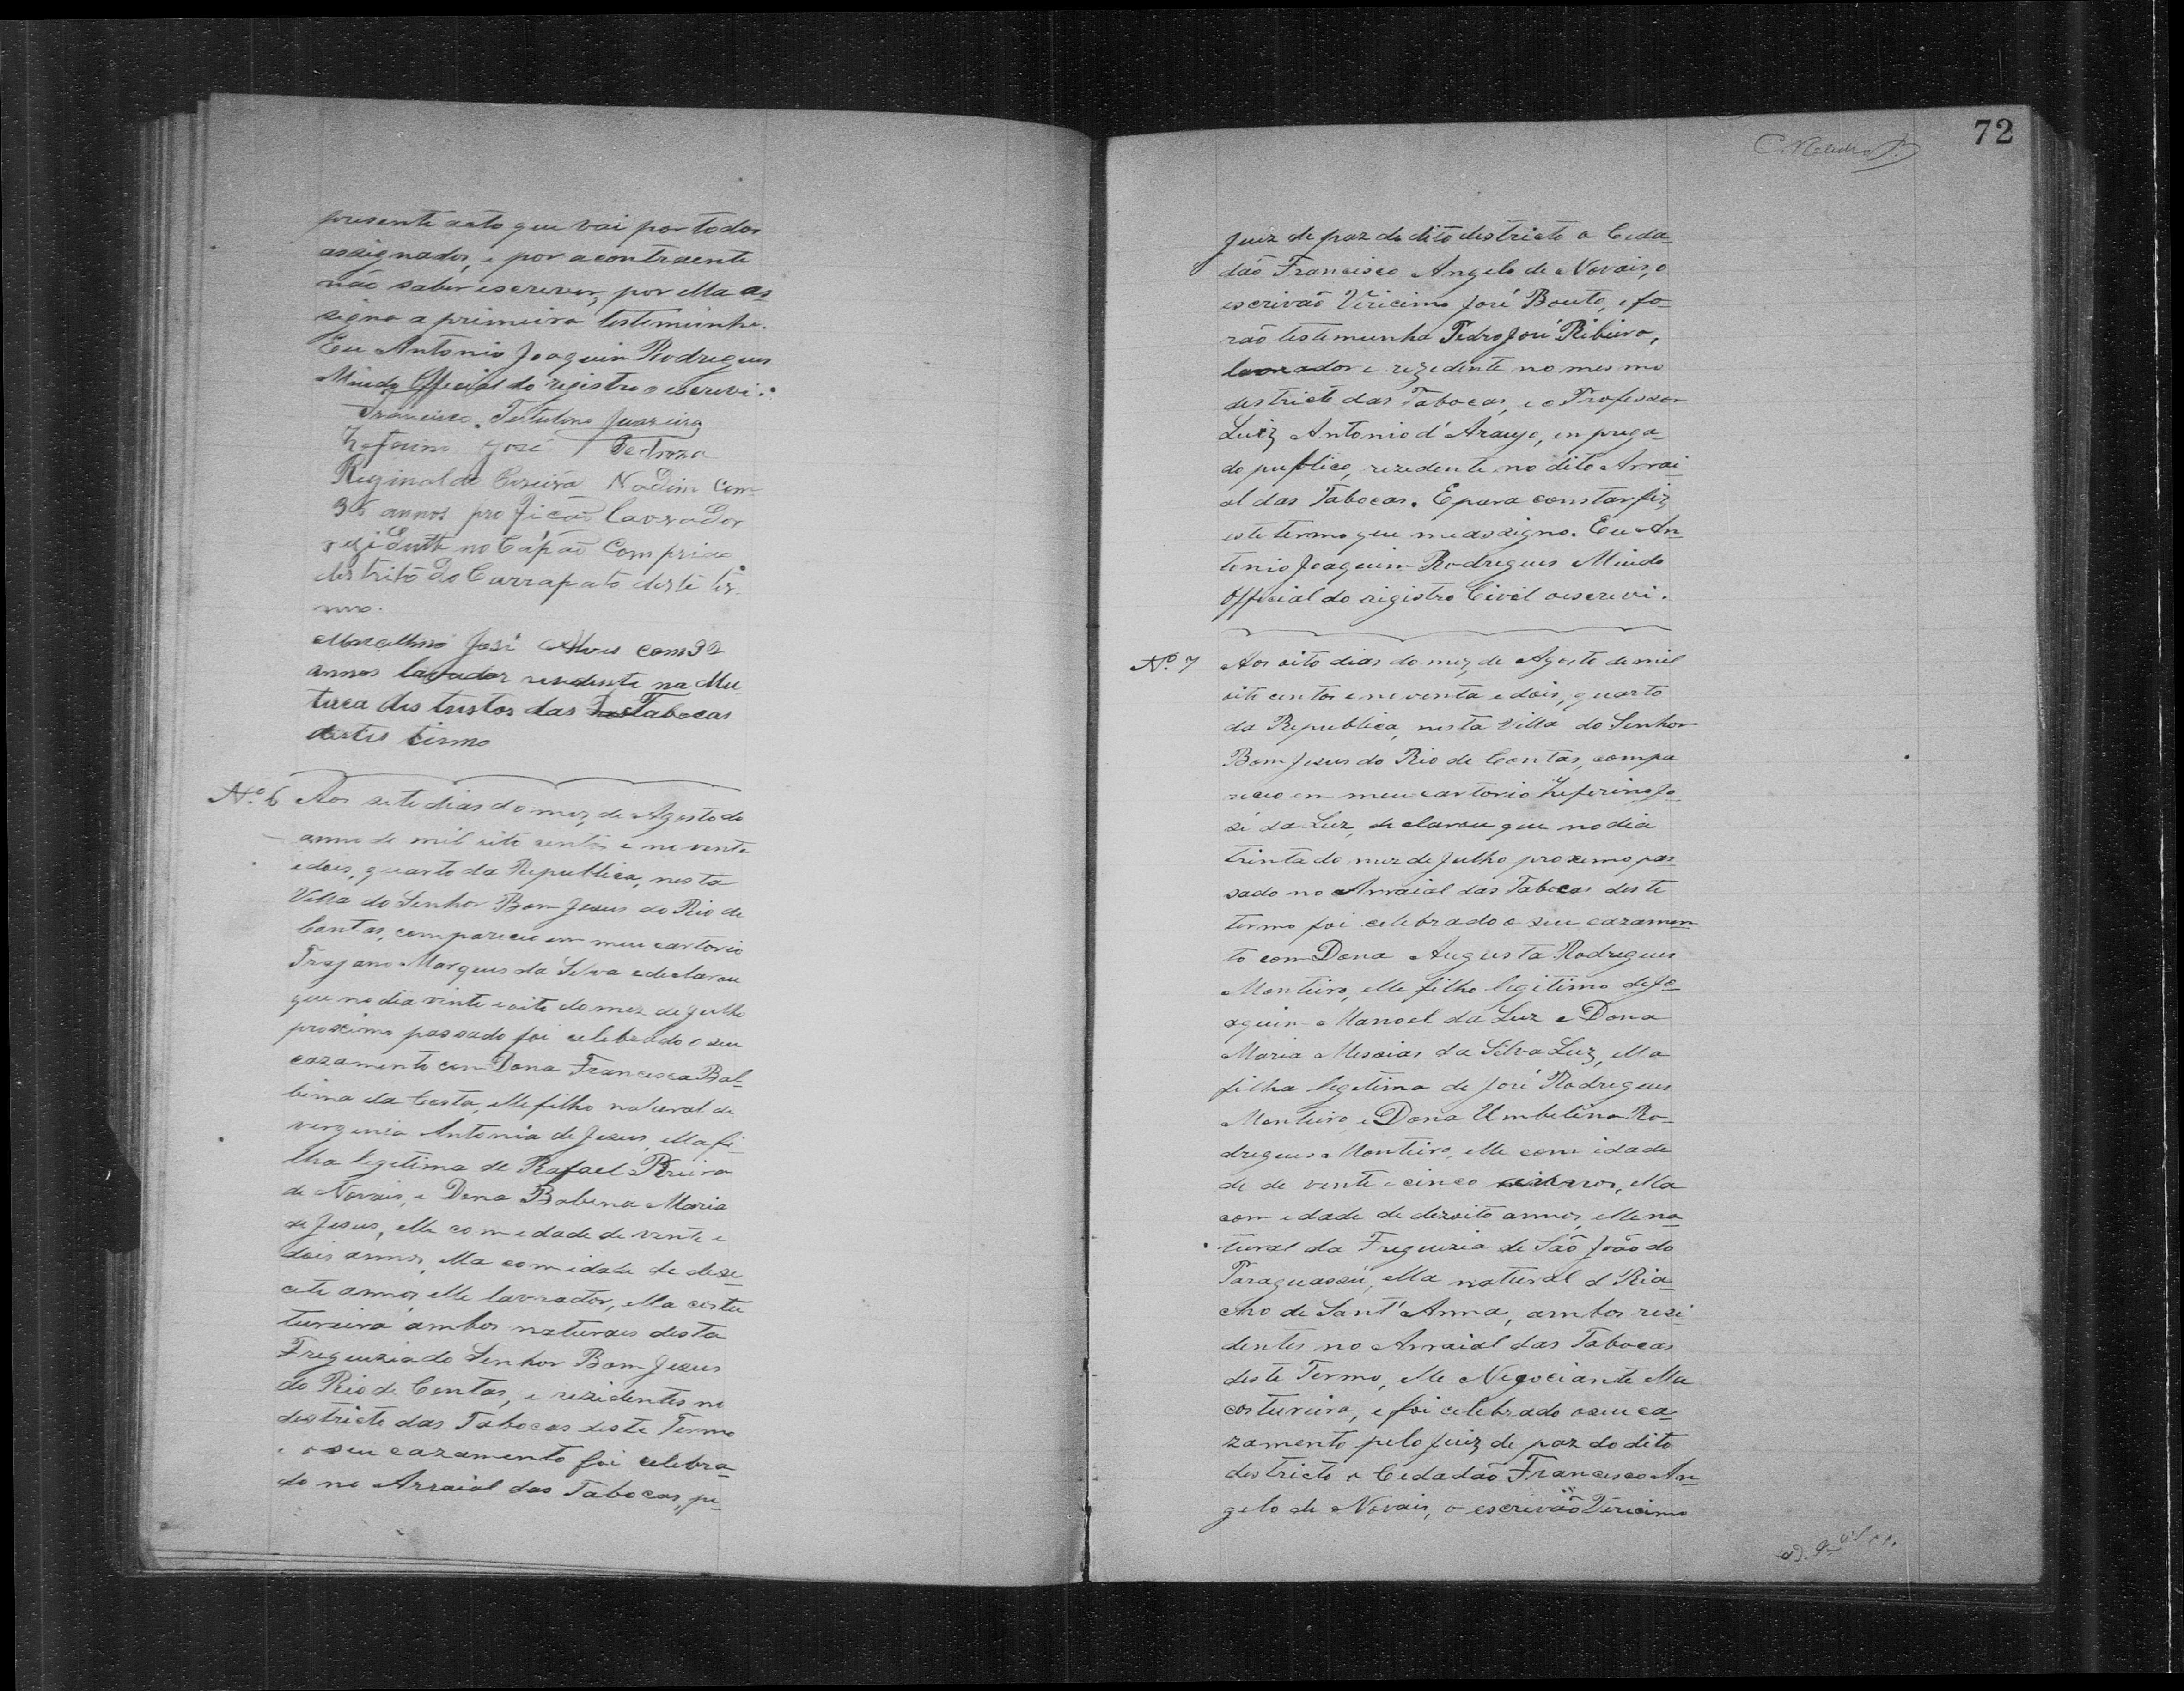 presente acto que vai por todos
assignados, e por a contraente
não saber escrever, por ella as
signa a primeira testemunha.
Eu Antonio Joaquim Rodrigues
Minds Official do registro o escrevi.
Francisco
Zeferino José Pedroza
Reginaldo Com
35 annos proficão lavrador
rezidente no Capão Comprido
destrito do Carrapato deste ter
mo.
Marcellino José Alves com 32
annos lavador resedente na Mu
tuca destristos das Tabocas
destes termo
Nº. 6 Aos sete dias do mez de Agosto do
anno de mil oito centos e noventa
e dois, quarto da Republica, nesta
Villa do Senhor Bom Jesus do Rio de
Contas, compareceu em meu cartorio
Trajano Marques da Silva e declarou
que no dia vinte e oito do mez de Julho
proximo passado foi celebrado o seu
cazamento com Dona Francisca Bal-
bina da Costa, elle filho natural de
Vergenia Antonia de Jesus, ella fi-
lha legitima de Rafael Pereira
de Novais, e Dona Balbena Maria
de Jesus, elle com edade de vente e
dois annos, ella com idade de deze-
cete annos, elle lavrador, ella costu
tureira ambos naturaes desta
Freguezia do Senhor Bom Jesus
do Rio de Contas, e rezidentes no
destricto das Tabocas deste Termo
e o seu cazamento foi celebra-
do no Arraial das Tabocas, pe-
72
Juiz de paz do dito destricto o Ceda
dão Francisco Angelo de Novais, o
escrivão Viricimo José Bouto, e fo-
rão testemunha Pedro José Ribeiro,
lavrador e rezedente no mesmo
destricto das Tabocas, e o Professor
Luiz Antonio d'Araujo, en prega-
do publico, rezedente no dito Arrai
al das Tabocas. E para constar fiz
este termo que me assigno. Eu An-
tonio Joaquim Rodrigues Minds
Official do registro Civil o escrevi.
Nº. 7 Aos oito dias do mez de Agosto de mil
oito centos e noventa e dois, quarto
da Republica, nesta Villa do Senhor
Bom Jesus do Rio de Contas, compa
receu em meu cartorio Zeferino Jo-
sé da Luz, declarou que no dia
trinta do mez de Julho proximo pas-
sado no Arraial das Tabocas deste
termo foi celebrado o seu cazamen-
to com Dona Augusta Rodrigues
Monteiro, elle filho legitimo de Jo-
aquim Manoel da Luz e Dona
Maria Messias da Silva Luz, ella
filha legetima de José Rodrigues
Monteiro e Dona Umbelina Ro-
drigues Monteiro, elle com idade
de de vente e cinco annos, ella
com edade de dezoito annos, elle na-
tural da Freguezia de São João do
Paraguassú, ella natural d'Ria-
cho de Sant'Anna, ambos resi
dentes no Arraial das Tabocas
deste Termo, elle Negociante ella
costureira, e foi celebrado o seu ca-
zamento pelo Juiz de paz do dito
destricto o Cedadão Francisco An-
gelo de Novais, o escrivão Viricimo